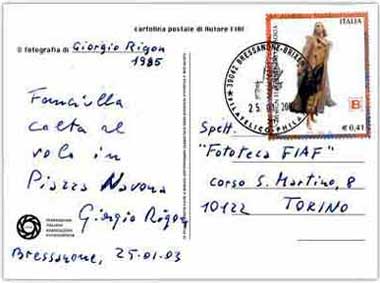 cartolina postale di Autore FIAF
© fotografia di Giorgio Rigon
1985
Fanciulla
colta al
volo in
Piazza Navona
Giorgio Rigon
Bressanone, 25-01-03
FEDERAZIONE
ITALIANA
ASSOCIAZIONI
FOTOGRAFICHE
ITALIA
€ 0,41
39042 BRESSANONE-BRIXEN
25
Spett.
"Fototeca FIAF"
corso S. Martino, 8
10122 TORINO